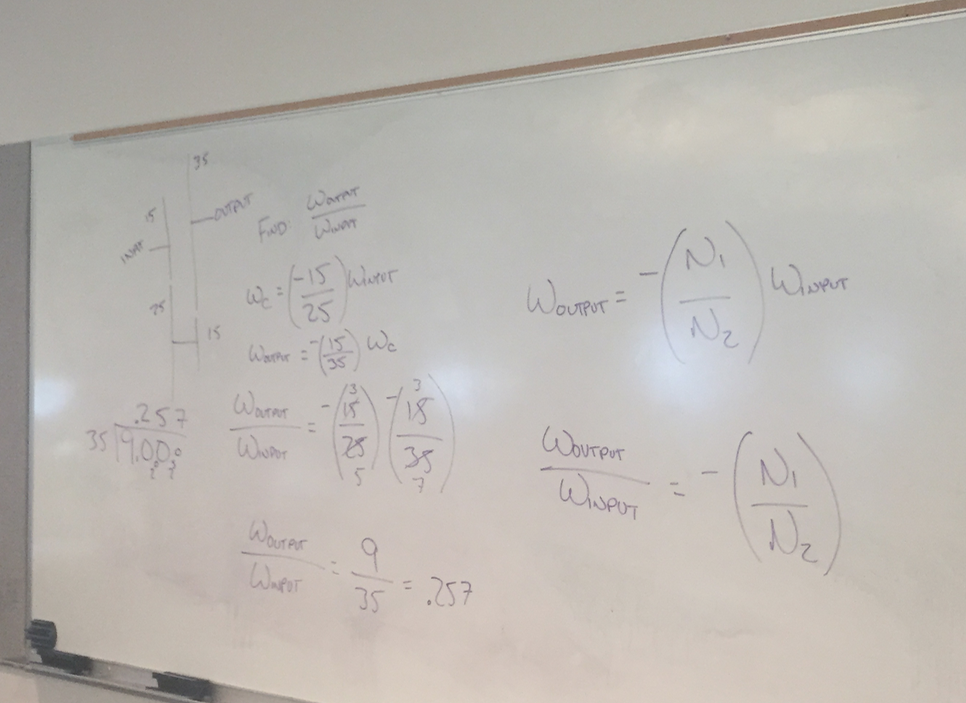 35
15
OUTPUT
INPUT
25
15
FIND: ωOUTPUT / ωINPUT
ωc = (-15/25) ωINPUT
ωOUTPUT = -(15/35) ωc
ωOUTPUT / ωINPUT = -(15/25) -(15/35)
3 3
5 7
.257
35 9.000
ωOUTPUT / ωINPUT = 9/35 = .257
ωOUTPUT = -(N1/N2) ωINPUT
ωOUTPUT / ωINPUT = -(N1/N2)